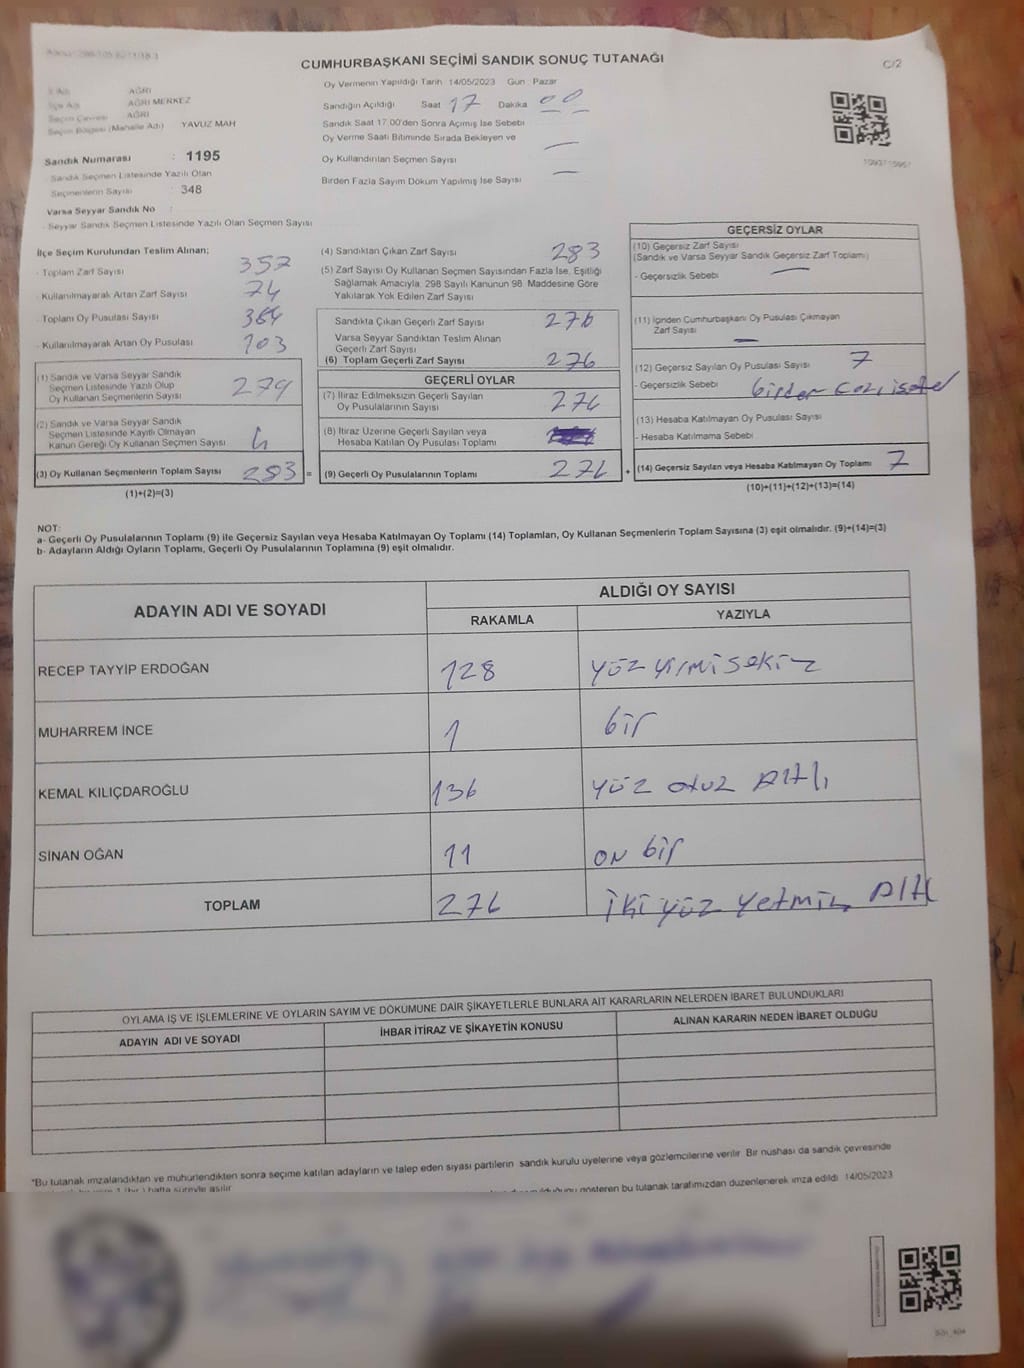 CUMHURBAŞKANI SEÇİMİ SANDIK SONUÇ TUTANAĞI
C/2
İl Adı AĞRI
İlçe Adı AĞRI MERKEZ
Seçim Çevresi AĞRI
Seçim Bölgesi (Mahalle Adı) YAVUZ MAH
Sandık Numarası : 1195
- Sandık Seçmen Listesinde Yazılı Olan
Seçmenlerin Sayısı : 348
Varsa Seyyar Sandık No :
- Seyyar Sandık Seçmen Listesinde Yazılı Olan Seçmen Sayısı
Oy Vermenin Yapıldığı Tarih 14/05/2023 Gün : Pazar
Sandığın Açıldığı Saat 17 Dakika 00
Sandık Saat 17.00'den Sonra Açımış İse Sebebi
Oy Verme Saati Bitiminde Sırada Bekleyen ve
Oy Kullandırılan Seçmen Sayısı —
Birden Fazla Sayım Döküm Yapılmış İse Sayısı —
İlçe Seçim Kurulundan Teslim Alınan;
- Toplam Zarf Sayısı 357
- Kullanılmayarak Artan Zarf Sayısı 74
- Toplanı Oy Pusulası Sayısı
- Kullanılmayarak Artan Oy Pusulası 103
(1) Sandık ve Varsa Seyyar Sandık
Seçmen Listesinde Yazılı Olup
Oy Kullanan Seçmenlerin Sayısı 279
(2) Sandık ve Varsa Seyyar Sandık
Seçmen Listesinde Kayıtlı Olmayan
Kanun Gereği Oy Kullanan Seçmen Sayısı 4
(3) Oy Kullanan Seçmenlerin Toplam Sayısı 283 =
(1)+(2)=(3)
(4) Sandıktan Çıkan Zarf Sayısı 283
(5) Zarf Sayısı Oy Kullanan Seçmen Sayısından Fazla İse, Eşitliği
Sağlamak Amacıyla, 298 Sayılı Kanunun 98. Maddesine Göre
Yakılarak Yok Edilen Zarf Sayısı
Sandıkta Çıkan Geçerli Zarf Sayısı 276
Varsa Seyyar Sandıktan Teslim Alınan
Geçerli Zarf Sayısı
(6) Toplam Geçerli Zarf Sayısı 276
GEÇERLİ OYLAR
(7) İtiraz Edilmeksizin Geçerli Sayılan
Oy Pusulalarının Sayısı 276
(8) İtiraz Üzerine Geçerli Sayılan veya
Hesaba Katılan Oy Pusulası Toplamı
(9) Geçerli Oy Pusulalarının Toplamı 276 +
GEÇERSİZ OYLAR
(10) Geçersiz Zarf Sayısı
(Sandık ve Varsa Seyyar Sandık Geçersiz Zarf Toplamı)
- Geçersizlik Sebebi —
(11) İçinden Cumhurbaşkanı Oy Pusulası Çıkmayan
Zarf Sayısı —
(12) Geçersiz Sayılan Oy Pusulası Sayısı 7
- Geçersizlik Sebebi birden
(13) Hesaba Katılmayan Oy Pusulası Sayısı
- Hesaba Katılmama Sebebi
(14) Geçersiz Sayılan veya Hesaba Katılmayan Oy Toplamı 7
(10)+(11)+(12)+(13)=(14)
NOT:
a- Geçerli Oy Pusulalarının Toplamı (9) ile Geçersiz Sayılan veya Hesaba Katılmayan Oy Toplamı (14) Toplamları, Oy Kullanan Seçmenlerin Toplam Sayısına (3) eşit olmalıdır. (9)+(14)=(3)
b- Adayların Aldığı Oyların Toplamı, Geçerli Oy Pusulalarının Toplamına (9) eşit olmalıdır.
ADAYIN ADI VE SOYADI
ALDIĞI OY SAYISI
RAKAMLA YAZIYLA
RECEP TAYYİP ERDOĞAN 128 yüz yirmi sekiz
MUHARREM İNCE 1 bir
KEMAL KILIÇDAROĞLU 136 yüz otuz Altı
SİNAN OĞAN 11 on bir
TOPLAM 276 iki yüz yetmiş Altı
OYLAMA İŞ VE İŞLEMLERİNE VE OYLARIN SAYIM VE DÖKÜMÜNE DAİR ŞİKAYETLERLE BUNLARA AİT KARARLARIN NELERDEN İBARET BULUNDUKLARI
ADAYIN ADI VE SOYADI İHBAR İTİRAZ VE ŞİKAYETİN KONUSU ALINAN KARARIN NEDEN İBARET OLDUĞU
*Bu tutanak imzalandıktan ve mühürlendikten sonra seçime katılan adayların ve talep eden siyasi partilerin sandık kurulu üyelerine veya gözlemcilerine verilir. Bir nüshası da sandık çevresinde
(bir) hafta süreyle asılır. gösteren bu tutanak tarafımızdan düzenlenerek imza edildi 14/05/2023